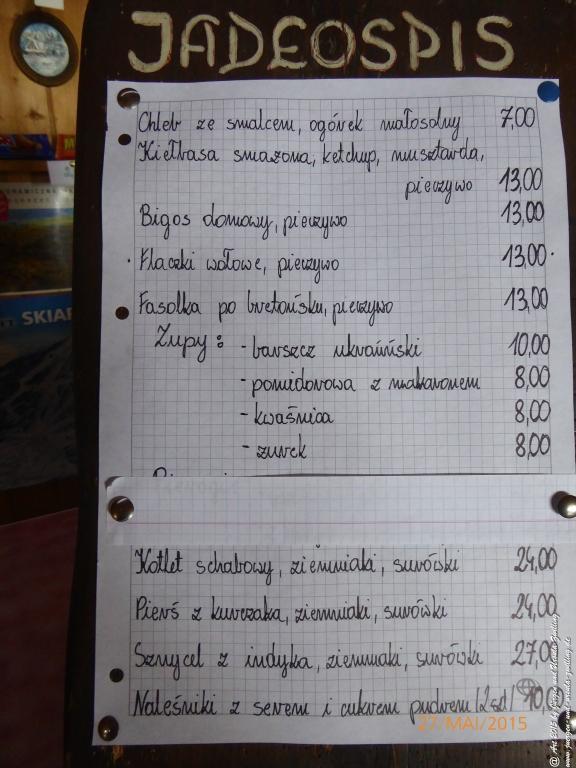 JADEOSPIS
Chleb ze smalcem, ogórek małosolny 7,00
Kiełbasa smażona, ketchup, musztarda,
pieczywo 13,00
Bigos domowy, pieczywo 13,00
Flaczki wołowe, pieczywo 13,00
Fasolka po bretońsku, pieczywo 13,00
Zupy: - barszcz ukraiński 10,00
- pomidorowa z makaronem 8,00
- kwaśnica 8,00
- żurek 8,00
Kotlet schabowy, ziemniaki, surówki 24,00
Pierś z kurczaka, ziemniaki, surówki 24,00
Sznycel z indyka, ziemniaki, surówki 27,00
Naleśniki z serem i cukrem pudrem (2szt) 10,00
27/MAI/2015
SKIAR